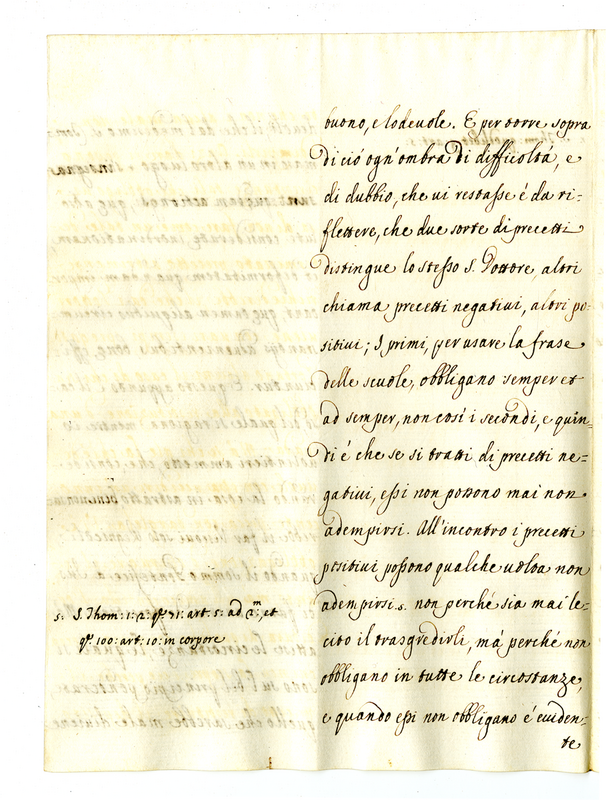 buono, e lodevole. E per torre sopra
di ció ogn'ombra di difficoltá, e
di dubbio, che vi restasse é da ri=
flettere, che due sorte di precetti
distingue lo stesso S. Dottore, altri
chiama precetti negativi, altri po=
sitivi; I primi, per usare la frase
delle scuole, obbligano semper et
ad semper, non cosí i secondi, e quin=
di é che se si tratti di precetti ne=
gativi, essi non possono mai non
adempirsi. All'incontro i precetti
positivi possono qualche volta non
adempirsi.5. non perché sia mai le=
cito il trasgredirli, má perché non
obbligano in tutte le circostanze,
e quando essi non obbligano é eviden=
te
5: S. Thom: 1: 2: q: 71: art: 5: ad 2:m, et
q: 100: art: 10: in corpore